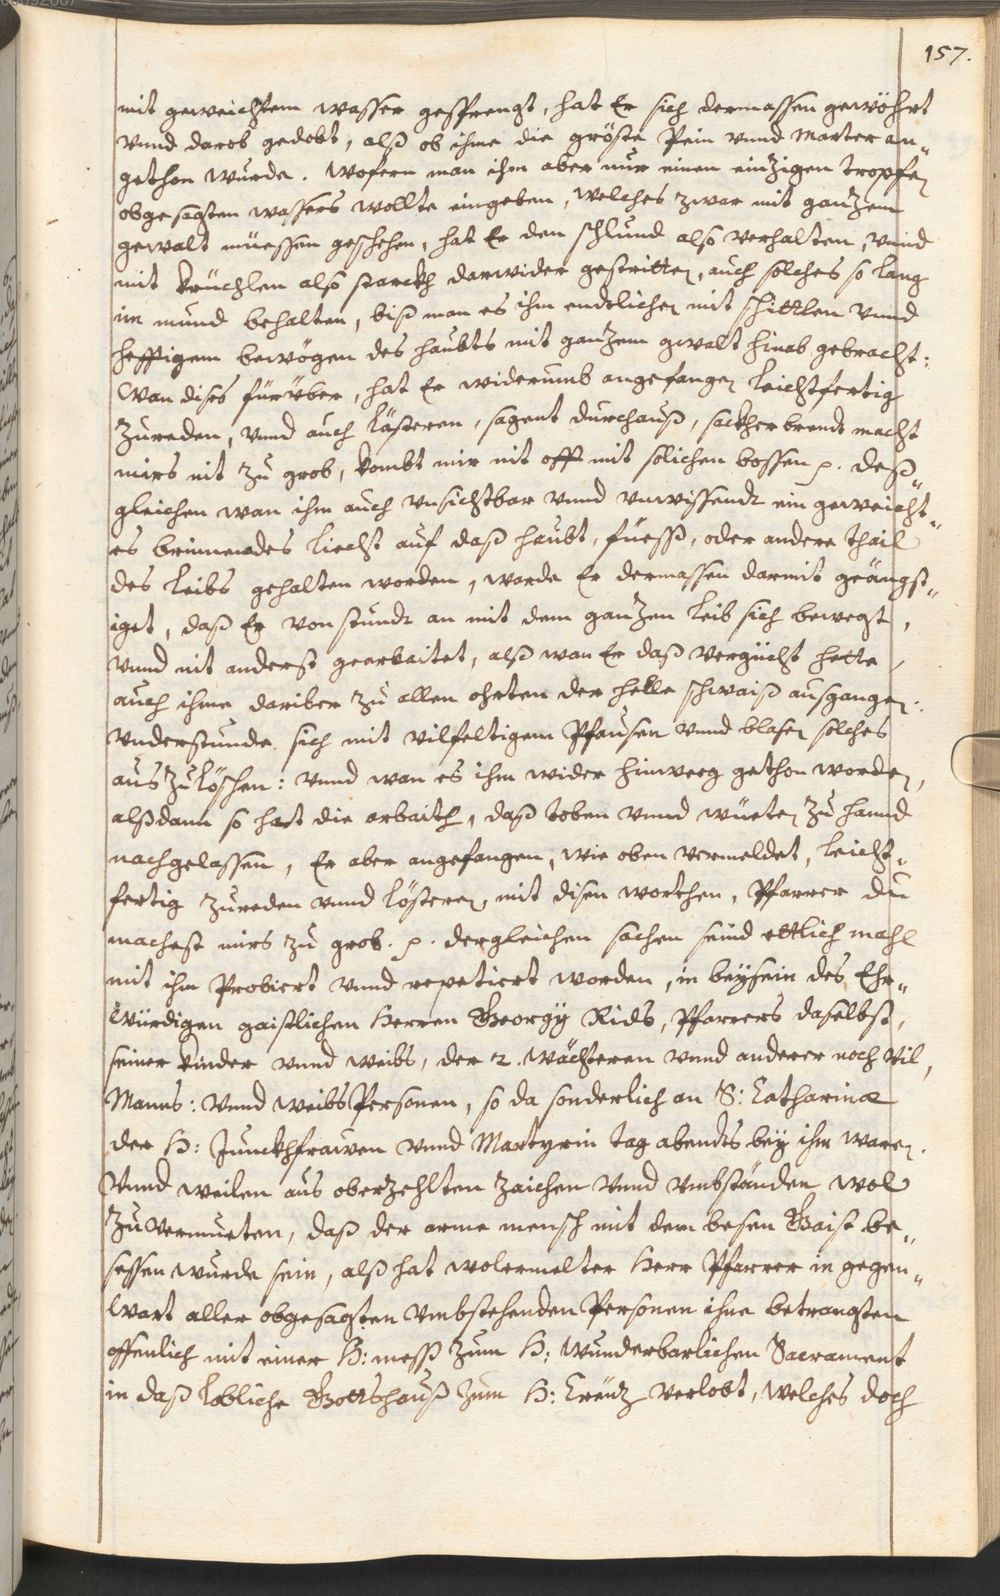 157.
mit geweichtem wasser gesprengt, hat Er sich dermassen gewöhrt
vnnd darob gedobt, alß ob ihme die gröste Pein vnnd Marter an„
gethon wurde. Wofern man ihm aber nur einen einzigen tropfen
obgesagten wassers wollte eingeben, welches zwar mit ganzem
gewalt müessen geschehen, hat Er den schlund also verhalten, vnnd
mit keüchlen also starckh darwider gestritten, auch solches so lang
im mund behalten, biß man es ihm endtlichen mit schittlen vnnd
hefftigem bewögen des haubts mit ganzem gwalt hinab gebracht:
Wan dises fürüber, hat Er widerumb angefangen leichtfertig
zureden, vnnd auch lästeren, sagent durchauß, sackherbrendt macht
mirs nit zu grob, kombt mir nit offt mit solichen bossen p. deß„
gleichen wan ihm auch vnsichtbar vnnd vnwissendt ein geweicht„
es brinnendes liecht auf daß haubt, füeß, oder andere thail
des leibs gehalten worden, warde Er dermassen darmit geängst„
iget, daß Er von stundt an mit dem ganzen leib sich bewegt,
vnnd nit anderst gearbaitet, alß wan Er daß vergücht hette,
auch ihme dariber zu allen ohrten der helle schwaiß ausgangen.
Vnderstunde sich mit vilfeltigem Pfausen vnnd blasen solches
aus zu löschen: vnnd wan es ihm wider hinweeg gethon worden,
alßdann so hat die arbaith, daß toben vnnd wüeten zu hannd
nachgelassen, Er aber angefangen, wie oben vermeldet, leicht„
fertig zureden vnnd lösteren, mit disen worthen, Pfarrer du
machest mirs zu grob. p. dergleichen sachen seind ettlich mahl
mit ihm Probiert vnnd repetiert worden, in beysein des Ehr„
würdigen gaistlichen Herren Georgÿ Rids, Pfarrers daselbst,
seiner kinder vnnd weibs, der 2. wächteren vnnd anderer noch vil,
Manns: vnnd weibs Personen, so da sonderlich an S: Catharinæ
der H: Junckhfrawen vnnd Martyrin tag abendts bey ihm waren.
Vnnd weilen aus oberzehlten zaichen vnnd vmbständen wol
zu vermueten, daß der arme mensch mit dem besen Gaist be„
sessen wurde sein, alß hat wolermelter Herr Pfarrer in gegen„
wart aller obgesagten vmbstehenden Personen ihne betrangten
offentlich mit einer H: mess zum H: wunderbarlichen Sacrament
in daß lobliche Gottshauß zum H: Creütz verlobt, welches doch